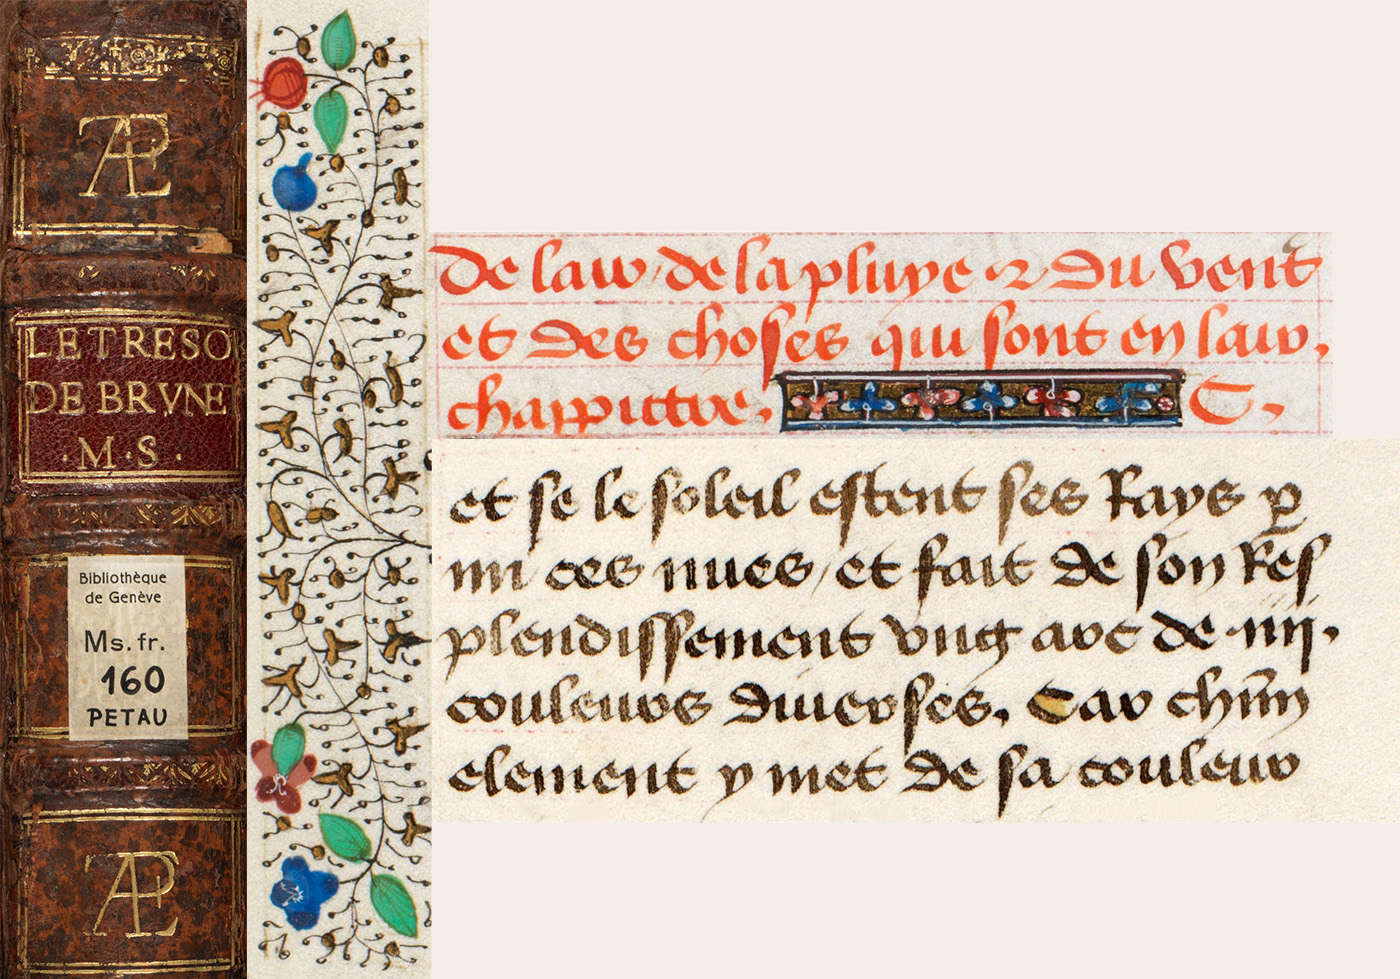 LE TRESO
DE BRVNE
·M·S·
Bibliothèque
de Genève
Ms. fr.
160
PETAU
De lair de la pluye et du vent
et des choses qui sont en lair,
chappittre, C,
et se le soleil estent ses Rays p
mi ces nues / et fait de son Res
plendissement vng arc de .iiij.
couleurs diuerses, Car chũn
element y met de sa couleur